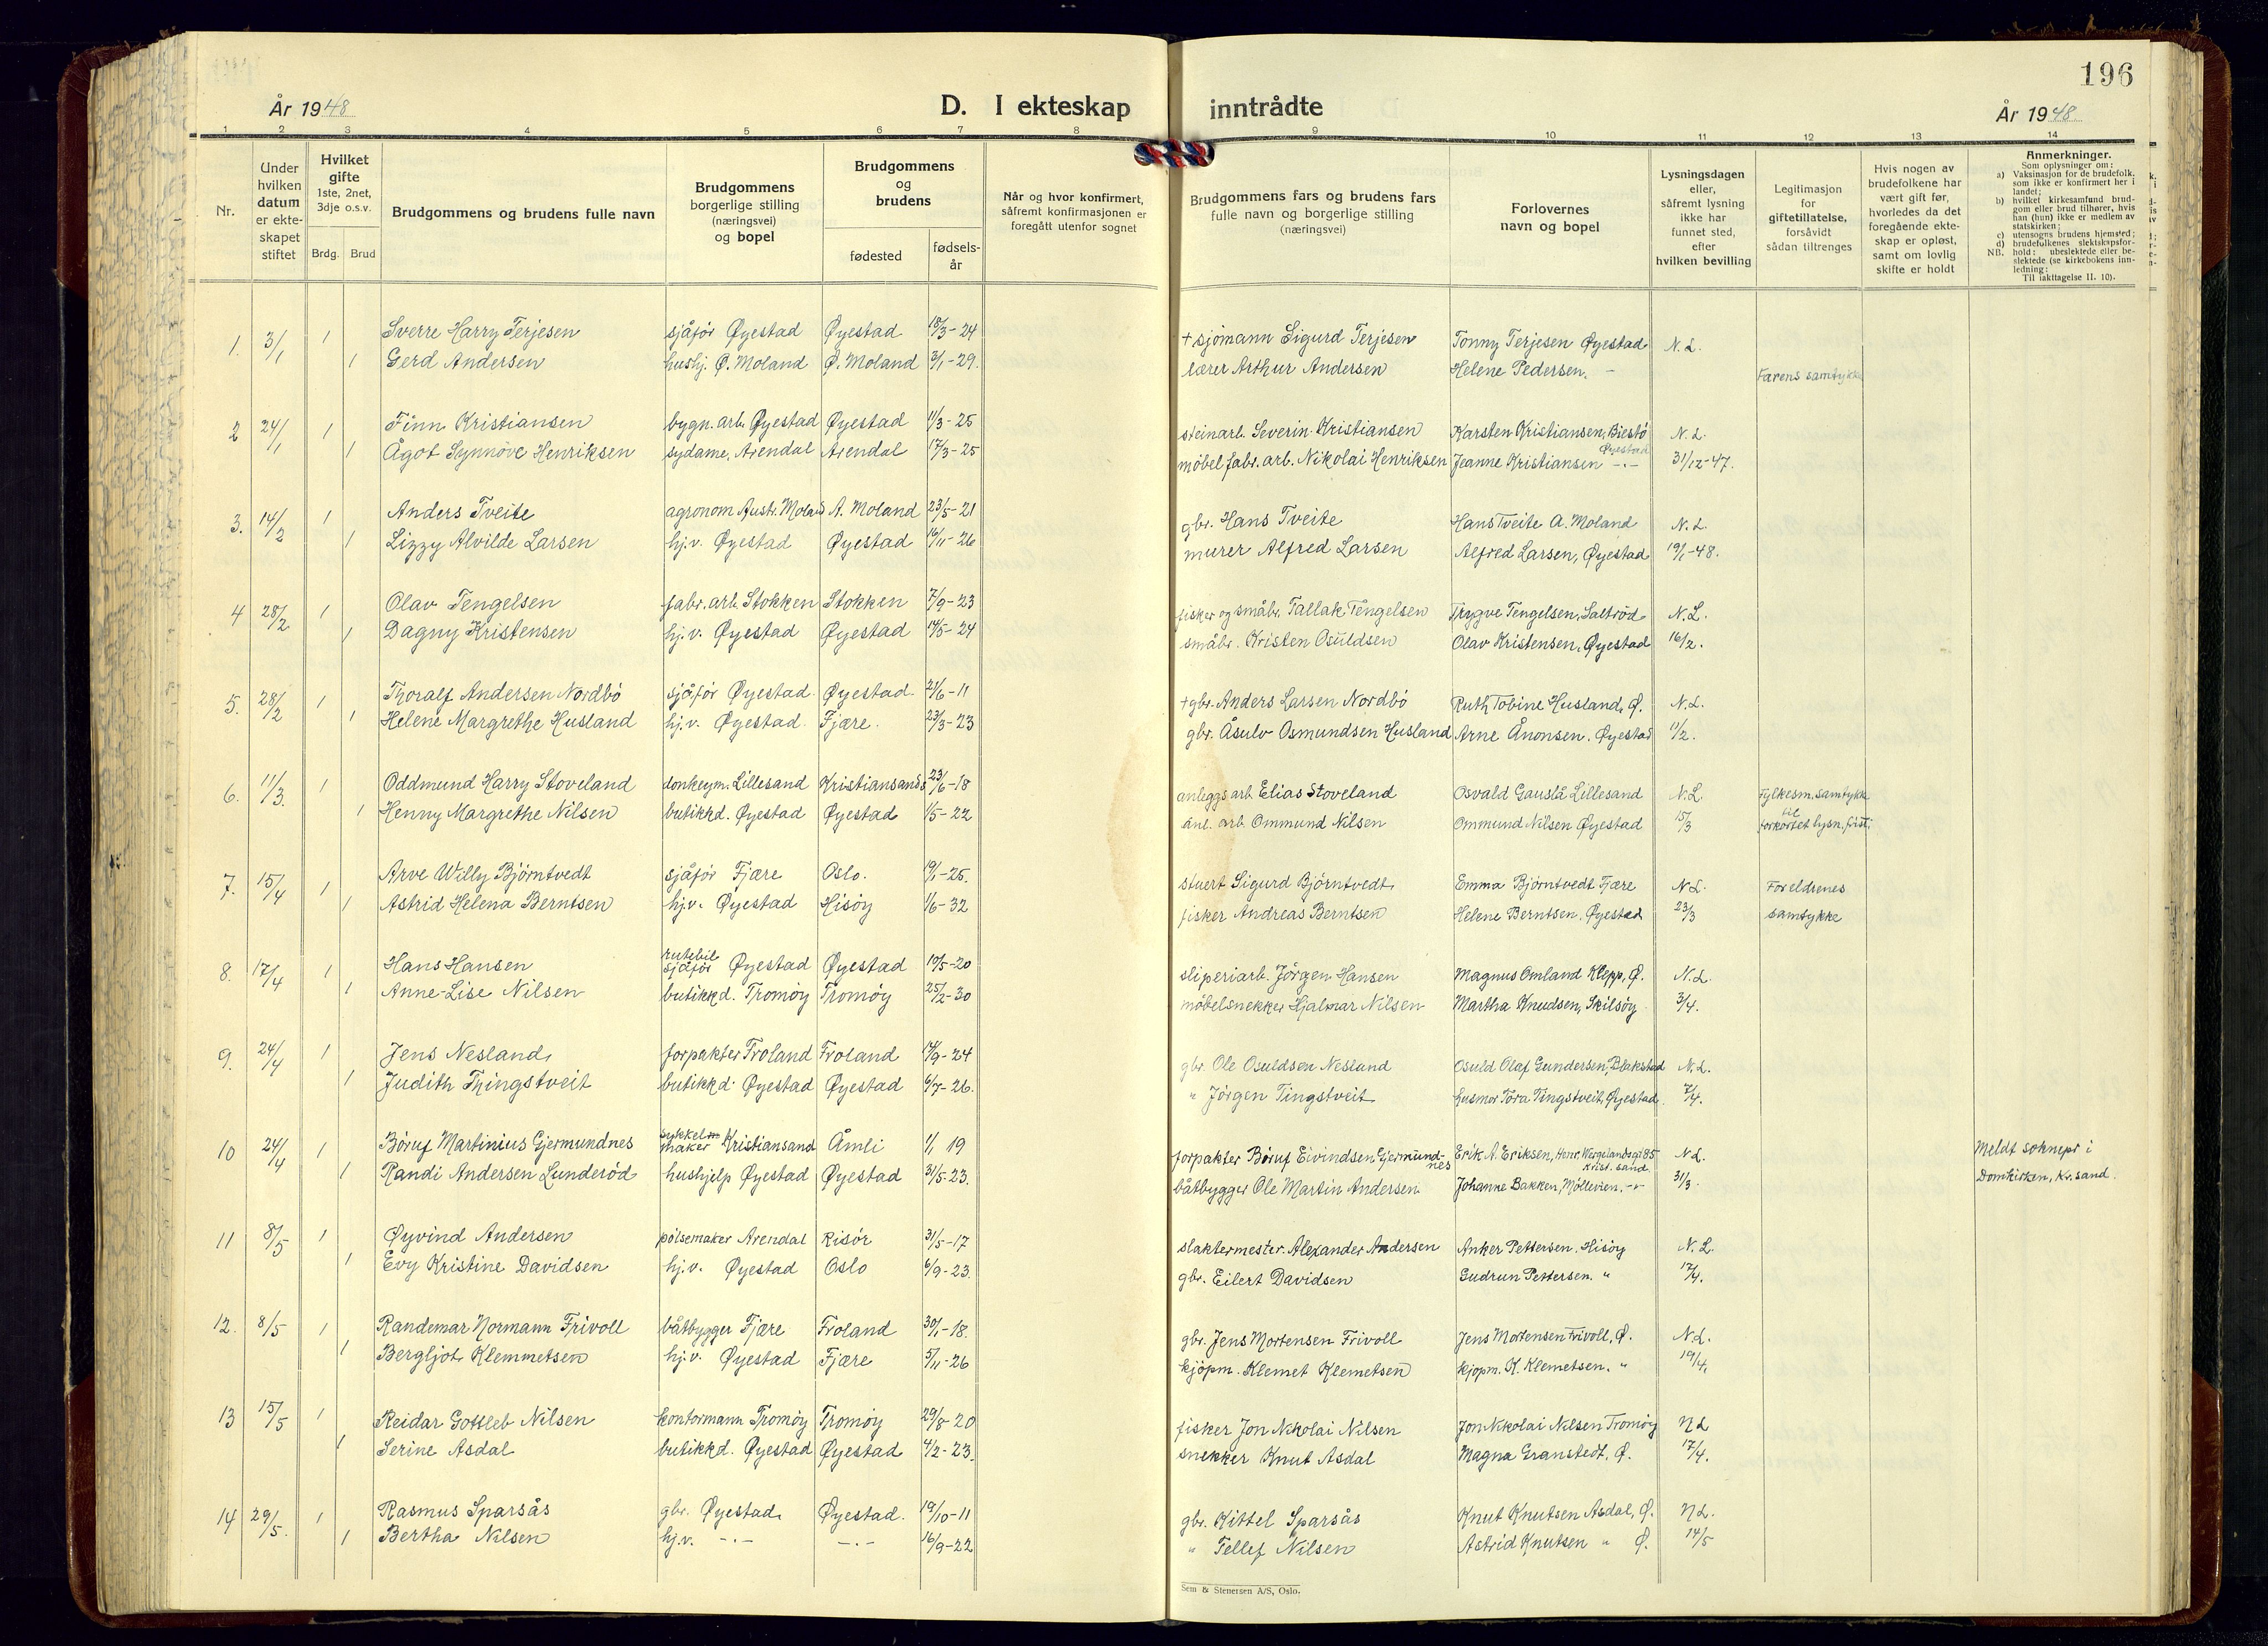 196
År 1948 D. I ekteskap inntrådte År 1948
1 2 3 4 5 6 7 8 9 10 11 12 13 14
Nr.
Under hvilken datum er ekteskapet stiftet
Hvilket gifte 1ste, 2net, 3dje o.s.v.
Brdg. Brud
Brudgommens og brudens fulle navn
Brudgommens borgerlige stilling (næringsvei) og bopel
Brudgommens og brudens
fødested fødsels-år
Når og hvor konfirmert, såfremt konfirmasjonen er foregått utenfor sognet
Brudgommens fars og brudens fars fulle navn og borgerlige stilling (næringsvei)
Forlovernes navn og bopel
Lysningsdagen eller, såfremt lysning ikke har funnet sted, efter hvilken bevilling
Legitimasjon for giftetillatelse, forsåvidt sådan tiltrenges
Hvis nogen av brudefolkene har vært gift før, hvorledes da det foregående ekteskap er opløst, samt om lovlig skifte er holdt
Anmerkninger.
Som oplysninger om:
a) Vaksinasjon for de brudefolk, som ikke er konfirmert her i landet;
b) hvilket kirkesamfund brudgom eller brud tilhører, hvis han (hun) ikke er medlem av statskirken;
c) utensogns brudens hjemsted;
d) brudefolkenes slektskapsforhold: ubeslektede eller beslektede (se kirkebokens innledning:
NB. Til iakttagelse II. 10).
1. 3/1 1 Sverre Harry Terjesen sjåför Øyestad Øyestad 18/3-24 + sjömann Sigurd Terjesen Tonny Terjesen Øyestad N.L.
1 Gerd Andersen hushj. Ø. Moland Ø. Moland 3/1-29. lærer Arthur Andersen Helene Pedersen. - Farens samtykke
2 24/1 1 Finn Kristiansen bygn. arb. Øyestad Øyestad 11/3-25 steinarb. Severin Kristiansen Karsten Kristiansen, Biestö Øyestad N.L.
1 Ågot Synnöve Henriksen sydame, Arendal Arendal 17/3-25 möbelfabr. arb. Nikolai Henriksen Jeanne Kristiansen -.- 31/12-47.
3. 14/2 1 Anders Tveite agronom Austr. Moland A. Moland 23/5-21 gbr. Hans Tveite Hans Tveite A. Moland N.L.
1 Lizzy Alvilde Larsen hj.v. Øyestad Øyestad 16/11-26 murer Alfred Larsen Alfred Larsen, Øyestad 19/1-48.
4 28/2 1 Olav Tengelsen fabr. arb. Stokken Stokken 7/9-23 fisker og småbr. Tallak Tengelsen Trygve Tengelsen, Saltröd N.L.
1 Dagny Kristensen hj.v. Øyestad Øyestad 14/5-24 småbr. Kristen Osuldsen Olav Kristensen, Øyestad 16/2.
5. 28/2 1 Thoralf Andersen Nordbö sjåför Øyestad Øyestad 21/6-11 + gbr. Anders Larsen Nordbö Ruth Tobine Husland, Ø. N.L.
1 Helene Margrethe Husland hj.v. Øyestad Fjære. 23/3-23 gbr. Åsulv Osmundsen Husland Arne Ånonsen. Øyestad 11/2.
6. 11/3. 1 Oddmund Harry Stoveland donkeym. Lillesand Kristiansand S 23/6-18 anleggsarb. Elias Stoveland Osvald Gauslå Lillesand N.L. Fylkesm. samtykke til
1 Henny Margrethe Nilsen butikkd. Øyestad Øyestad 1/5-22 anl. arb. Ommund Nilsen Ommund Nilsen Øyestad 15/3 forkortet lysn. frist
7. 15/4 1 Arve Willy Björntvedt sjåför Fjære Oslo. 19/1-25. stuert Sigurd Björntvedt Emma Björntvedt Fjære N.L. Foreldrenes
1 Astrid Helena Berntsen hj.v. Øyestad Hisöy 1/6-32 fisker Andreas Berntsen Helene Berntsen. Øyestad 23/3 samtykke
8. 17/4 1 Hans Hansen rutebil sjåför Øyestad Øyestad 10/5-20 sliperiarb. Jörgen Hansen Magnus Omland Klepp, Ø. N.L.
1 Anne-Lise Nilsen butikkd. Tromöy Tromöy 25/2-30 möbelsnekker Hjalmar Nilsen Martha Knudsen, Skilsöy 3/4.
9. 24/4 1 Jens Nesland forpakter Froland Froland 14/9-24 gbr. Ole Osuldsen Nesland Osuld Olaf Gundersen, Blakstad N.L.
1 Judith Thingstveit butikkd. Øyestad Øyestad 6/7-26. " Jörgen Tingstveit husmor Tora Tingstveit, Øyestad 7/4.
10 24/4 1 Böruf Martinius Gjermundnes sykkelmaker Kristiansand Åmli 1/1 19 forpakter Böruf Eivindsen Gjermundnes Erik A. Eriksen, Henr. Wergelandsgt 85 Krist. sand N.L. Meldt soknepr i
1 Randi Andersen Lunderöd hushjelp Øyestad Øyestad 31/5-23. båtbygger Ole Martin Andersen Johanne Bakken, Möllevien. -"- 31/3. Domkirken, Kr.sand.
11 8/5 1 Øyvind Andersen pölsemaker Arendal Risör 31/5-17 slaktermester Alexander Andersen Anker Pettersen. Hisöy N.L.
1 Evy Kristine Davidsen hj.v. Øyestad Oslo 6/9-23. gbr. Eilert Davidsen Gudrun Pettersen. " 17/4.
12. 8/5 1 Randemar Normann Frivoll båtbygger Fjære Froland 30/1-18. gbr. Jens Mortensen Frivoll Jens Mortensen Frivoll, Ø. N.L.
1 Bergljot Klemmetsen hj.v. Øyestad Fjære 5/11-26 kjöpm. Klemet Klemetsen kjöpm. K. Klemetsen. " 19/4.
13 15/5 1 Reidar Gottleb Nilsen kontormann Tromöy Tromöy 29/8-20 fisker Jon Nikolai Nilsen Jon Nikolai Nilsen Tromöy N L
1 Serine Asdal butikkd. Øyestad Øyestad 4/2-23. snekker Knut Asdal Magna Granstedt, Ø. 17/4.
14 29/5. 1 Rasmus Sparsås gbr. Øyestad Øyestad. 19/10-11 gbr. Kittel Sparsås Knut Knutsen Asdal, Ø. N L.
1 Bertha Nilsen hj.v. -.- -.- 16/9-22 " Tellef Nilsen Astrid Knutsen " Ø. 14/5
Sem & Stenersen A/S, Oslo.